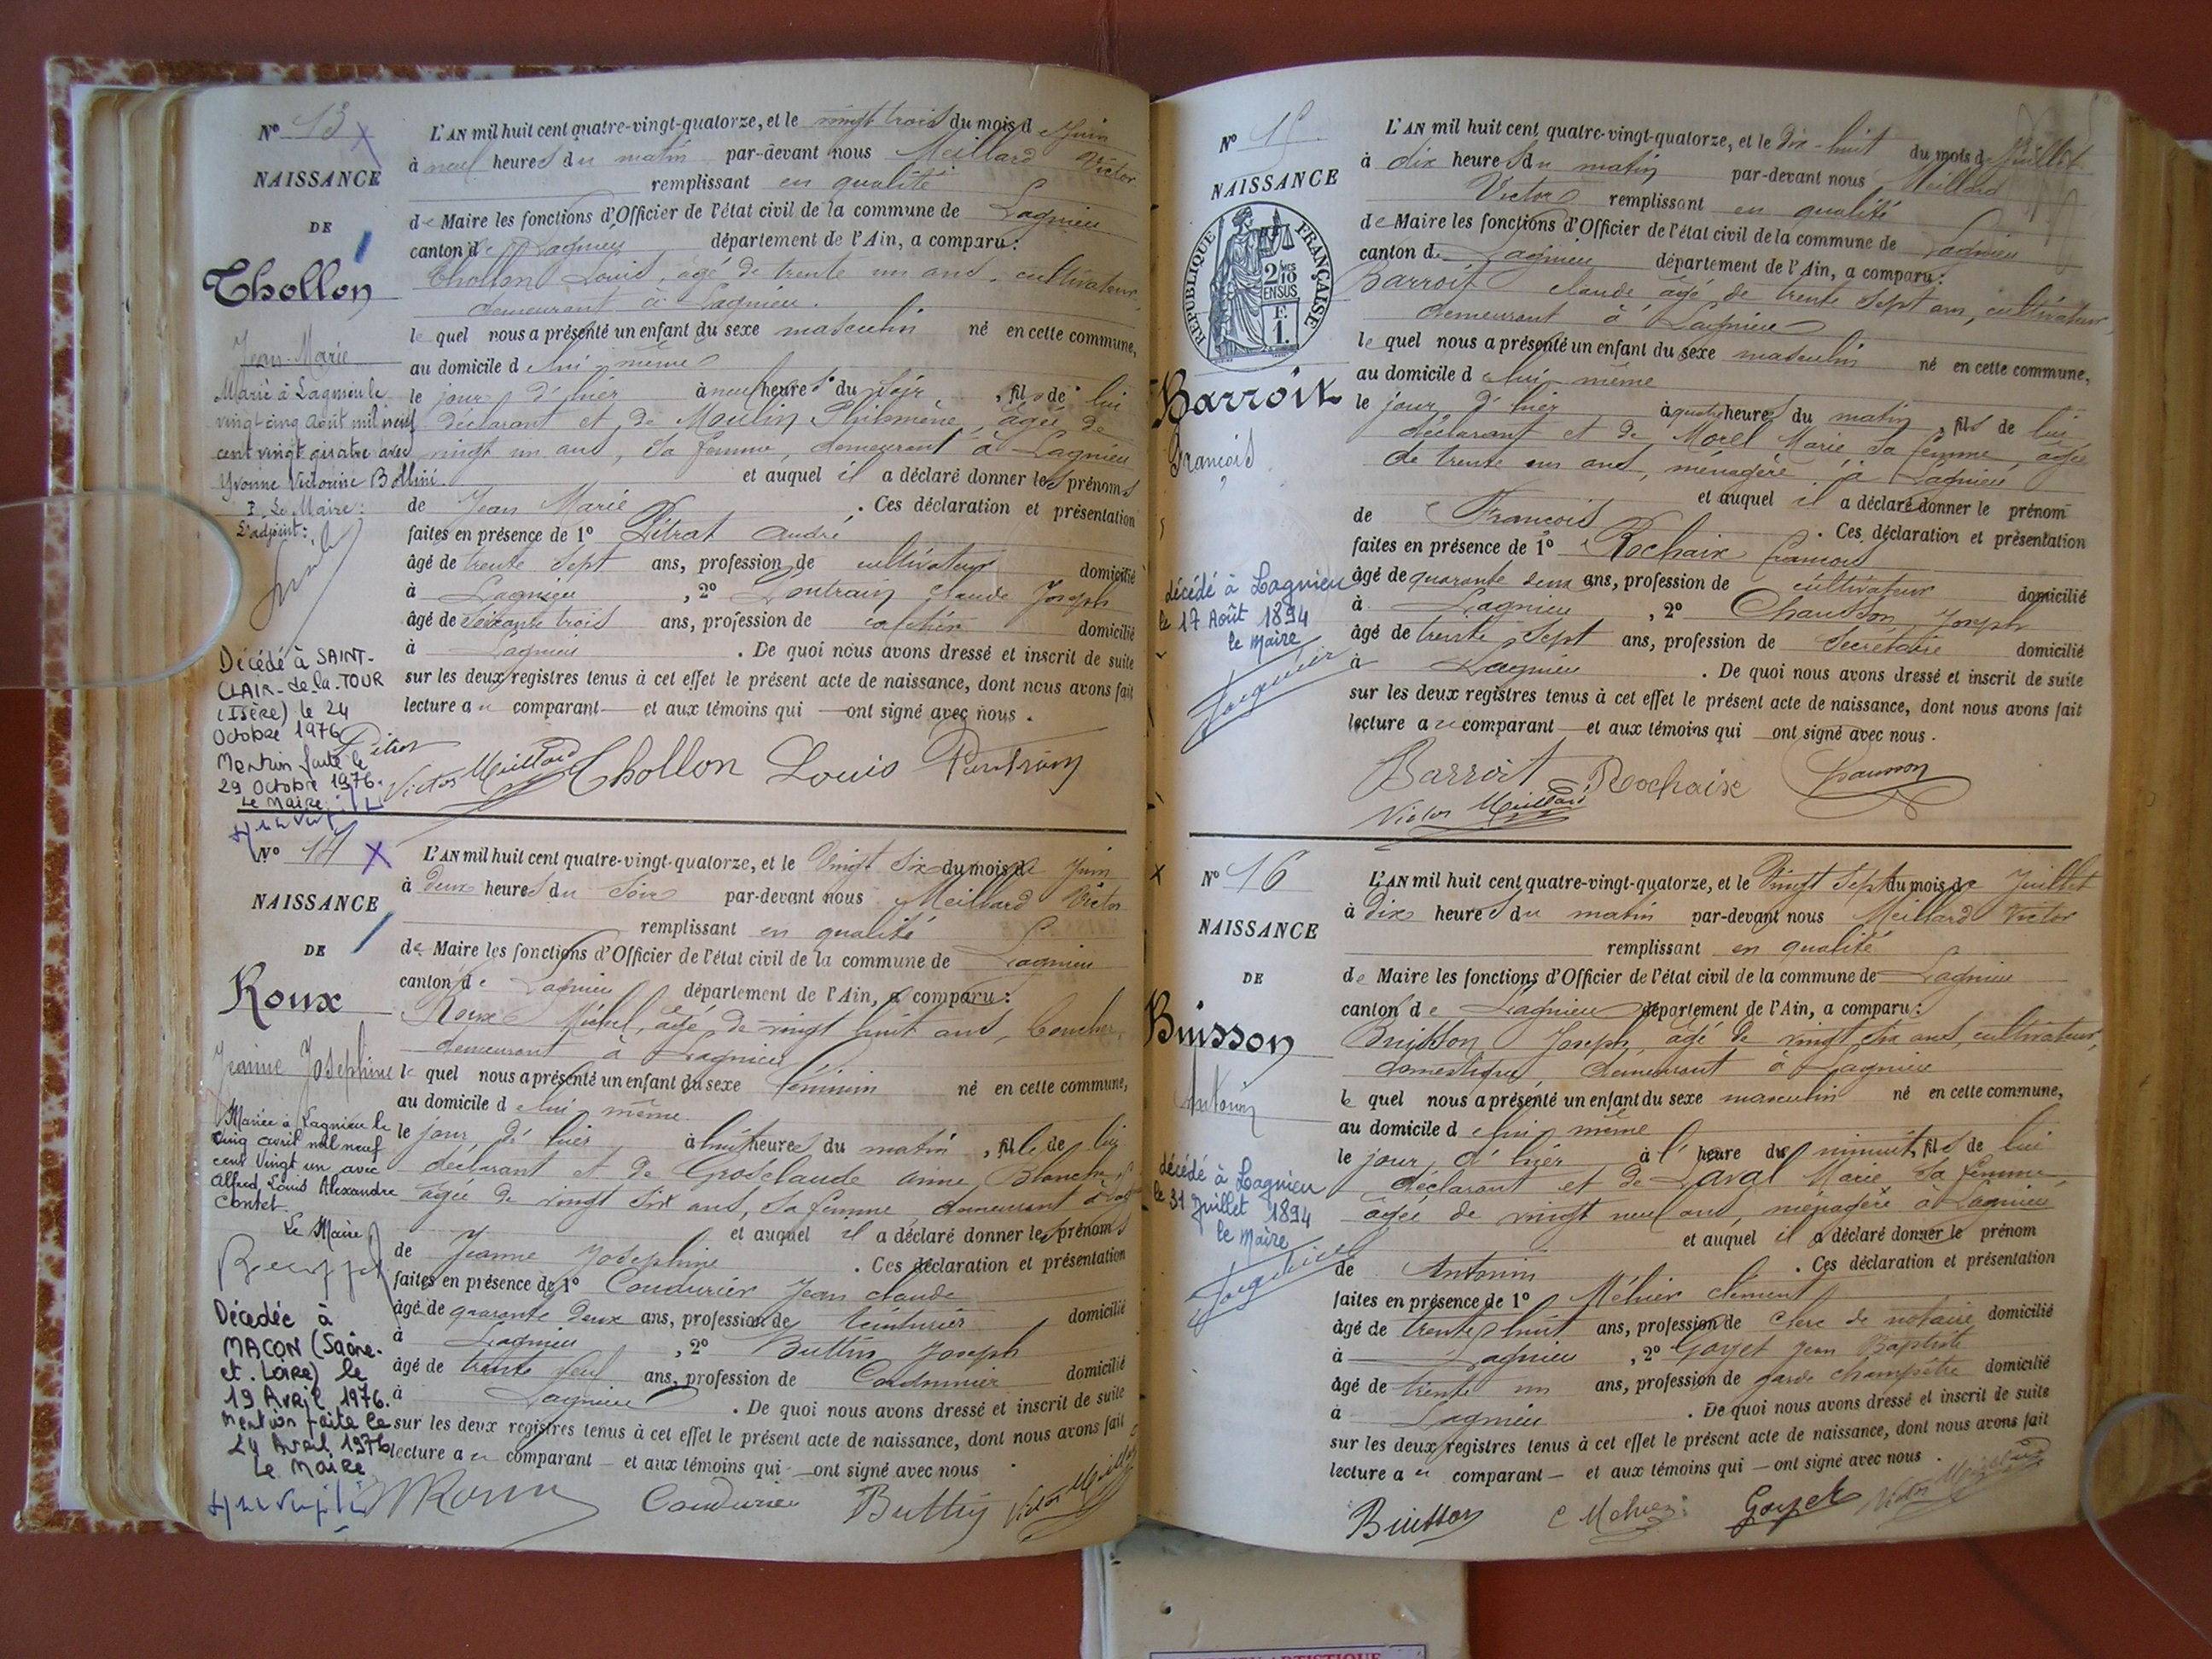 N° 13
NAISSANCE
DE
Thollon
Jean-Marie
Marié à Lagnieu le
vingt cinq Août mil neuf
cent vingt quatre avec
Yvonne Victorine Bollini.
P. Le Maire:
L'adjoint:
Décédé à SAINT-
CLAIR-de-la-TOUR
(Isère) le 24
Octobre 1976
Mention faite le
29 Octobre 1976.
Le Maire
L'AN mil huit cent quatre-vingt-quatorze, et le vingt trois du mois d Juin
à neuf heures du matin par-devant nous Meillard Victor
remplissant en qualité
de Maire les fonctions d'Officier de l'état civil de la commune de Lagnieu
canton de Lagnieu département de l'Ain, a comparu:
Thollon Louis, âgé de trente un ans, cultivateur
demeurant à Lagnieu.
lequel nous a présenté un enfant du sexe masculin né en cette commune,
au domicile de lui même
le jour d'hier à neuf heures du soir, fils de lui
déclarant et de Moulin Philomène, âgée de
vingt un ans, sa femme, demeurant à Lagnieu
et auquel il a déclaré donner les prénoms
de Jean Marie . Ces déclaration et présentation
faites en présence de 1° Pétrat André
âgé de trente sept ans, profession de cultivateur domicilié
à Lagnieu , 2° Claude Joseph
âgé de soixante trois ans, profession de cafetier domicilié
à Lagnieu . De quoi nous avons dressé et inscrit de suite
sur les deux registres tenus à cet effet le présent acte de naissance, dont nous avons fait
lecture au comparant et aux témoins qui ont signé avec nous.
Victor Meillard Thollon Louis
N° 14
NAISSANCE
DE
Roux
Jeanne Joséphine
Mariée à Lagnieu le
cinq avril mil neuf
cent vingt un avec
Alfred Louis Alexandre
Contet
Le Maire
Décédée à
MACON (Saône-
et-Loire) le
19 Avril 1976.
Mention faite le
24 Avril 1976
Le Maire
L'AN mil huit cent quatre-vingt-quatorze, et le Vingt six du mois de Juin
à deux heures du soir par-devant nous Meillard Victor
remplissant en qualité
de Maire les fonctions d'Officier de l'état civil de la commune de Lagnieu
canton de Lagnieu département de l'Ain, a comparu:
Roux Michel, âgé de vingt huit ans, boucher,
demeurant à Lagnieu
lequel nous a présenté un enfant du sexe féminin né en cette commune,
au domicile de lui même
le jour d'hier à huit heures du matin, fille de lui
déclarant et de Grosclaude Anne Blanche,
âgée de vingt six ans, sa femme, demeurant à
et auquel il a déclaré donner les prénoms
de Jeanne Joséphine . Ces déclaration et présentation
faites en présence de 1° Coudurier Jean Claude
âgé de quarante deux ans, profession de teinturier domicilié
à Lagnieu , 2° Buttin Joseph
âgé de trente neuf ans, profession de Cordonnier domicilié
à Lagnieu . De quoi nous avons dressé et inscrit de suite
sur les deux registres tenus à cet effet le présent acte de naissance, dont nous avons fait
lecture au comparant et aux témoins qui ont signé avec nous.
Roux Coudurier Buttin Victor Meillard
N° 15
NAISSANCE
REPUBLIQUE FRANÇAISE
2/10MES
EN SUS
F.
1.
Barroit
François
décédé à Lagnieu
le 17 Août 1894
le Maire
L'AN mil huit cent quatre-vingt-quatorze, et le dix-huit du mois de Juillet
à dix heures du matin par-devant nous Meillard
Victor remplissant en qualité
de Maire les fonctions d'Officier de l'état civil de la commune de Lagnieu
canton de Lagnieu département de l'Ain, a comparu:
Barroit Claude âgé de trente sept ans, cultivateur,
demeurant à Lagnieu
lequel nous a présenté un enfant du sexe masculin né en cette commune,
au domicile de lui même
le jour d'hier à quatre heures du matin, fils de lui
déclarant et de Morel Marie, sa femme, âgée
de trente un ans, ménagère à Lagnieu
et auquel il a déclaré donner le prénom
de François . Ces déclaration et présentation
faites en présence de 1° Rochaix François
âgé de quarante deux ans, profession de cultivateur domicilié
à Lagnieu , 2° Chausson Joseph
âgé de trente sept ans, profession de Secrétaire domicilié
à Lagnieu . De quoi nous avons dressé et inscrit de suite
sur les deux registres tenus à cet effet le présent acte de naissance, dont nous avons fait
lecture au comparant et aux témoins qui ont signé avec nous.
Barroit Rochaix Chausson
Victor Meillard
N° 16
NAISSANCE
DE
Buisson
Antonin
décédé à Lagnieu
le 31 Juillet 1894
le Maire
L'AN mil huit cent quatre-vingt-quatorze, et le Vingt sept du mois de Juillet
à dix heures du matin par-devant nous Meillard Victor
remplissant en qualité
de Maire les fonctions d'Officier de l'état civil de la commune de Lagnieu
canton de Lagnieu département de l'Ain, a comparu:
Buisson Joseph, âgé de vingt six ans, cultivateur,
domestique, demeurant à Lagnieu
lequel nous a présenté un enfant du sexe masculin né en cette commune,
au domicile de lui même
le jour d'hier à l'heure de minuit, fils de lui
déclarant et de Laval Marie, sa femme,
âgée de vingt neuf ans, ménagère à Lagnieu
et auquel il a déclaré donner le prénom
de Antonin . Ces déclaration et présentation
faites en présence de 1° Méhier Clément
âgé de trente huit ans, profession de Clerc de notaire domicilié
à Lagnieu , 2° Goyet Jean Baptiste
âgé de trente un ans, profession de garde champêtre domicilié
à Lagnieu . De quoi nous avons dressé et inscrit de suite
sur les deux registres tenus à cet effet le présent acte de naissance, dont nous avons fait
lecture au comparant et aux témoins qui ont signé avec nous.
Buisson C Mehier Goyet Victor Meillard